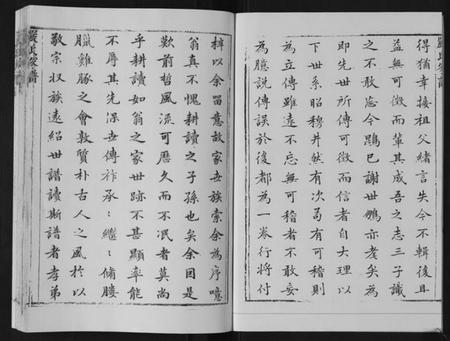 得猶幸接祖父緒言失今不輯後且
益無可徴而葉其成吾之志三子識
之不敢忘今鵾已謝世鵬亦老矣為
即先世所傳可徴而信者自大理以
下世系昭穆井然有次苟有可稽則
為立傳雖遠不忘無可稽者不敢妄
為臆說傳誤於後都為一卷行將付
梓以余留意故家世族索余為序噫
翁真不愧耕讀之子孫也矣余因是
歎前哲風流可歷久而不泯者莫尚
乎耕讀如翁之家世跡不甚顯率能
不辱其先深世傳祚承繼繼脩
臘雞豚之會敦質朴古人之風於以
敬宗收族遠紹世譜讀斯譜者孝弟
嚴氏家譜